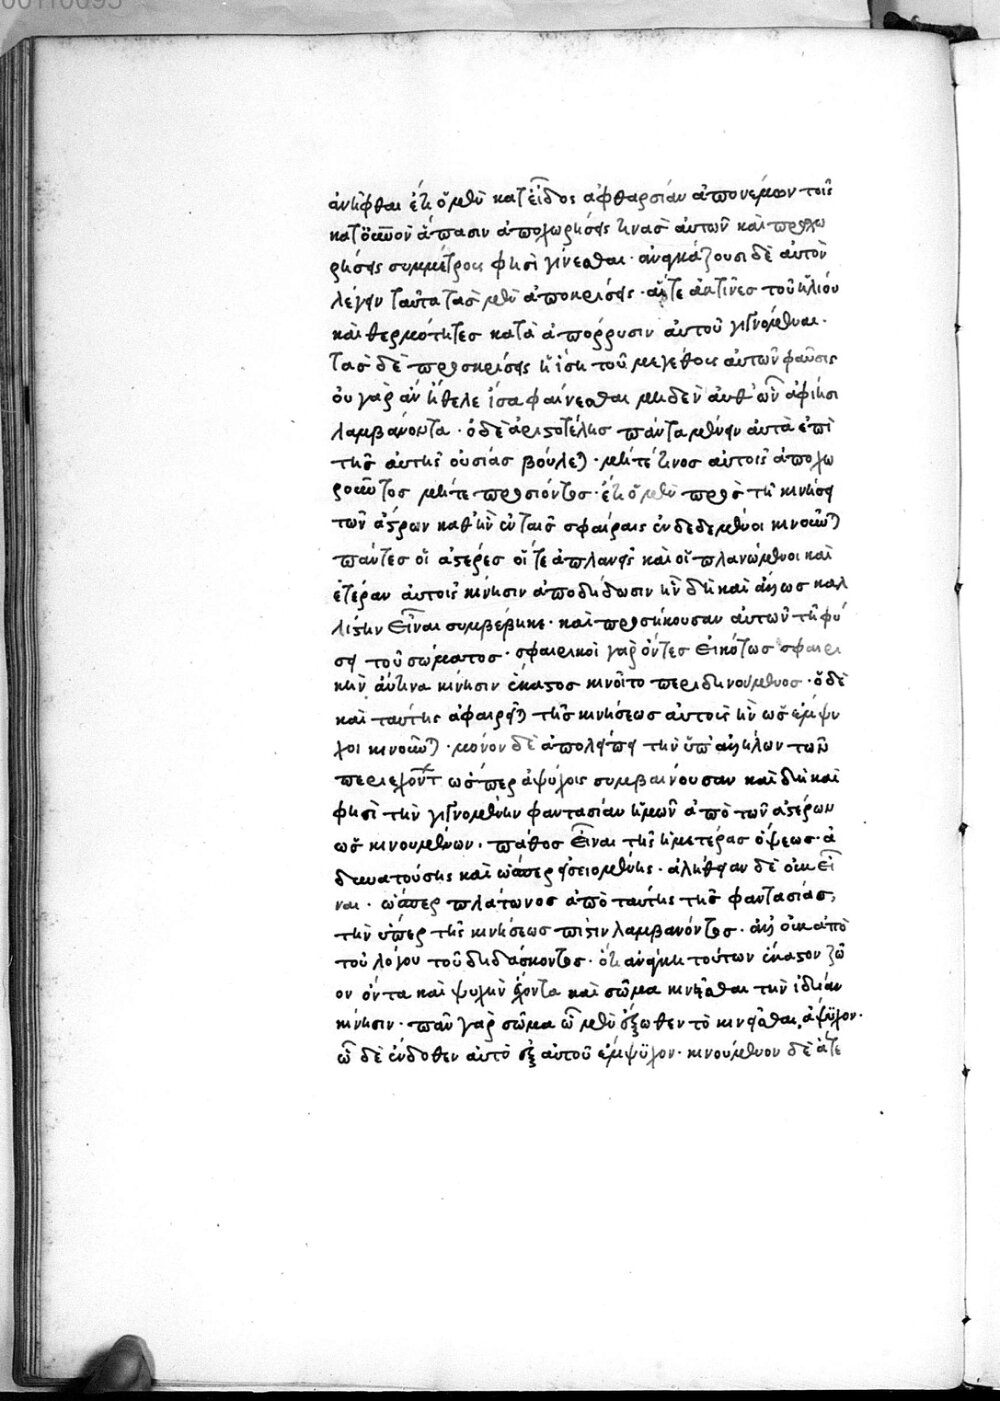 00110095
ἀνῆφθαι ἔτι ὁ μὲν κατ' εἶδος ἀφθαρσίαν ἀπονέμων τοῖς
καθ' ὅλον ἅπασιν ἀποχωρήσεις τινας αὐτῶν καὶ προσχω
ρήσεις συμμέτρους φησὶ γίνεσθαι· ἀναγκάζουσι δὲ αὐτὸν
λέγειν ταῦτα τὰς μὲν ἀποκρίσεις· αἵ τε ἀκτῖνες τοῦ ἡλίου
καὶ θερμότητες κατὰ ἀπόρρυσιν αὐτοῦ γιγνόμεναι·
τὰς δὲ προσκρίσεις ἡ ἴση τοῦ μεγέθους αὐτῶν φαῦσις
οὐ γὰρ ἂν ἤθελε ἴσα φαίνεσθαι μηδὲν ἀνθ' ὧν ἀφίησι
λαμβάνοντα· ὁ δὲ ἀριστοτέλης πάντα μένειν αὐτὰ ἐπὶ
τῆς αὐτῆς οὐσίας βούλεται· μήτέ τινος αὐτοῖς ἀποχω
ροῦντος μήτε προσιόντος· ἔτι ὁ μὲν πρὸς τῇ κινήσει
τῶν ἄστρων καθ' ἣν ἐν ταῖς σφαίραις ἐνδεδεμένοι κινοῦνται
πάντες οἱ ἀστέρες οἵ τε ἀπλανεῖς καὶ οἱ πλανώμενοι καὶ
ἑτέραν αὐτοῖς κίνησιν ἀποδίδωσιν ἣν δὴ καὶ ἄλλως καλ
λίστην εἶναι συμβέβηκε· καὶ προσήκουσαν αὐτῶν τῇ φύ
σει τοῦ σώματος· σφαιρικοὶ γὰρ ὄντες εἰκότως σφαιρι
κήν ἄν τινα κίνησιν ἕκαστος κινοῖτο περιδινούμενος· ὁ δὲ
καὶ ταύτης ἀφαιρεῖται τῆς κινήσεως αὐτοὺς ἣν ὡς ἔμψυ
χοι κινοῦνται· μόνον δὲ ἀπολείπει τὴν ὑπ' ἄλλων τῶν
περιεχόντων ὥσπερ ἀψύχοις συμβαίνουσαν καὶ δὴ καὶ
φησὶ τὴν γιγνομένην φαντασίαν ἡμῶν ἀπὸ τῶν ἀστέρων
ὡς κινουμένων· πάθος εἶναι τῆς ἡμετέρας ὄψεως· ἀ
δυνατούσης καὶ ὥσπερ σειομένης· ἀλήθειαν δὲ οὐκ εἶ
ναι· ὥσπερ πλάτωνος ἀπὸ ταύτης τῆς φαντασίας,
τὴν ὑπὲρ τῆς κινήσεως πίστιν λαμβάνοντος· ἀλλ' οὐκ ἀπὸ
τοῦ λόγου τοῦ διδάσκοντος· ὅτι ἀνάγκη τούτων ἕκαστον ζῶ
ον ὄντα καὶ ψυχὴν ἔχοντα καὶ σῶμα κινεῖσθαι τὴν ἰδίαν
κίνησιν· πᾶν γὰρ σῶμα ᾧ μὲν ἔξωθεν τὸ κινεῖσθαι, ἄψυχον·
ᾧ δὲ ἔνδοθεν αὐτὸ ἐξ αὑτοῦ ἔμψυχον· κινούμενον δὲ ἅτε